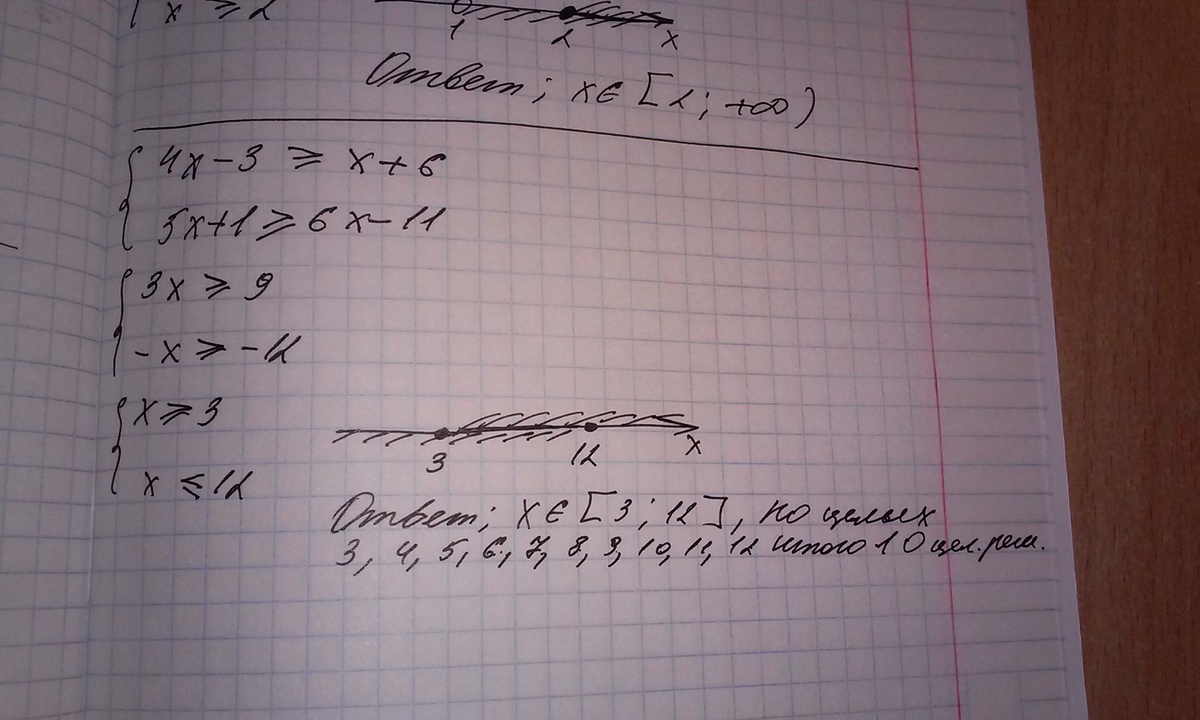 x ≥ 2
1 2 x
Ответ; x ∈ [2; +∞)
4x − 3 ≥ x + 6
5x + 1 ≥ 6x − 11
3x ≥ 9
−x ≥ −12
x ≥ 3
3 12 x
x ≤ 12
Ответ; x ∈ [3; 12], но целых
3, 4, 5, 6, 7, 8, 9, 10, 11, 12 итого 10 цел. реш.